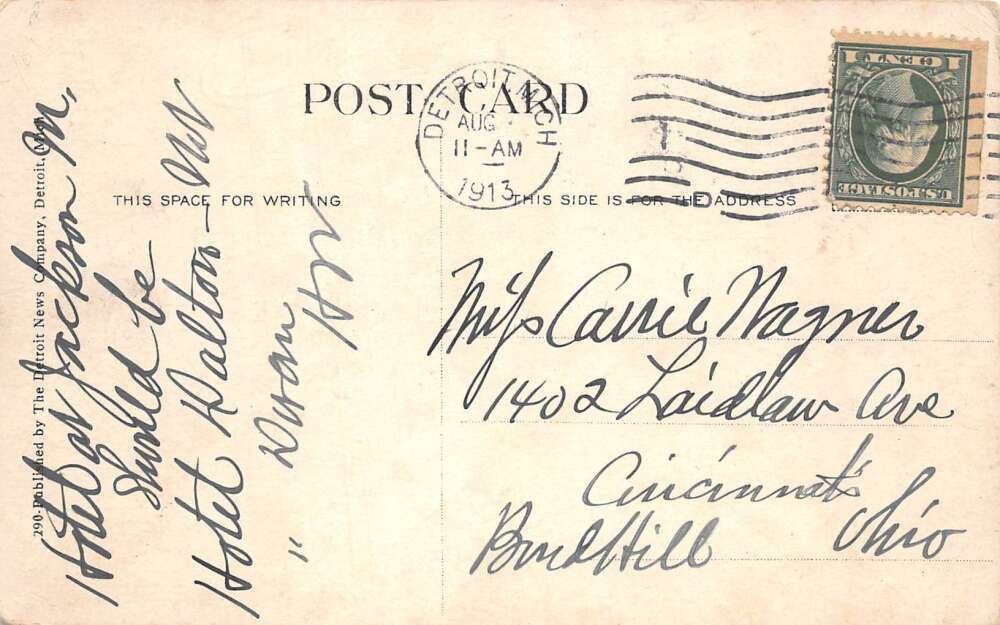 POST CARD
DETROIT, MICH
AUG
11-AM
1913
ONE CENT
U.S. POSTAGE
THIS SPACE FOR WRITING
THIS SIDE IS FOR THE ADDRESS
290-Published by The Detroit News Company, Detroit, Mich.
Hotel at Jackson M.
Should be
Hotel Dalton —
"
Miss Carrie Wagner
1402 Laidlaw Ave
Cincinnati
Bond Hill Ohio